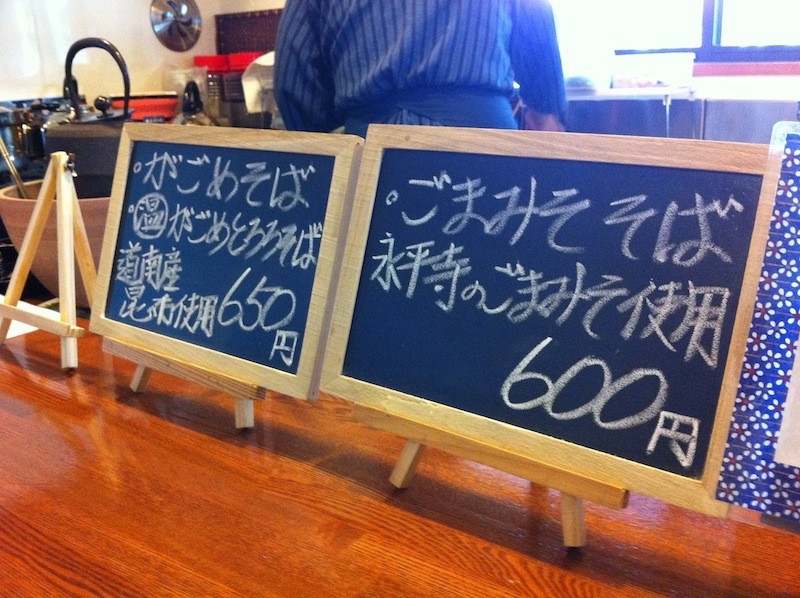 。がごめそば
・㊩がごめとろろそば
道南産
昆布使用650
円
。ごまみそそば
永平寺のごまみそ使用
600
円